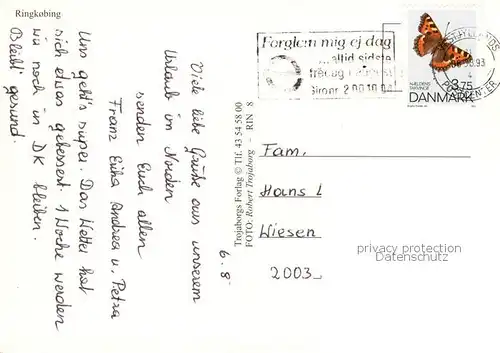 Ringkøbing
6. 8
Viele liebe Grüße aus unserem
Urlaub im Norden
senden Euch allen
Franz Erika Andrea u. Petra
Uns geht's super. Das Wetter hat
sich etwas gebessert. 1 Woche werden
wir noch in DK bleiben.
Bleibt gesund.
Trojaborgs Forlag © Tlf. 43 54 58 00
FOTO: Robert Trojaborg - RIN 8
Forglem mig ej dag
altid sidste
fredag i august
3.75
DANMARK
Fam.
Hans
Wiesen
2003
privacy protection
Datenschutz